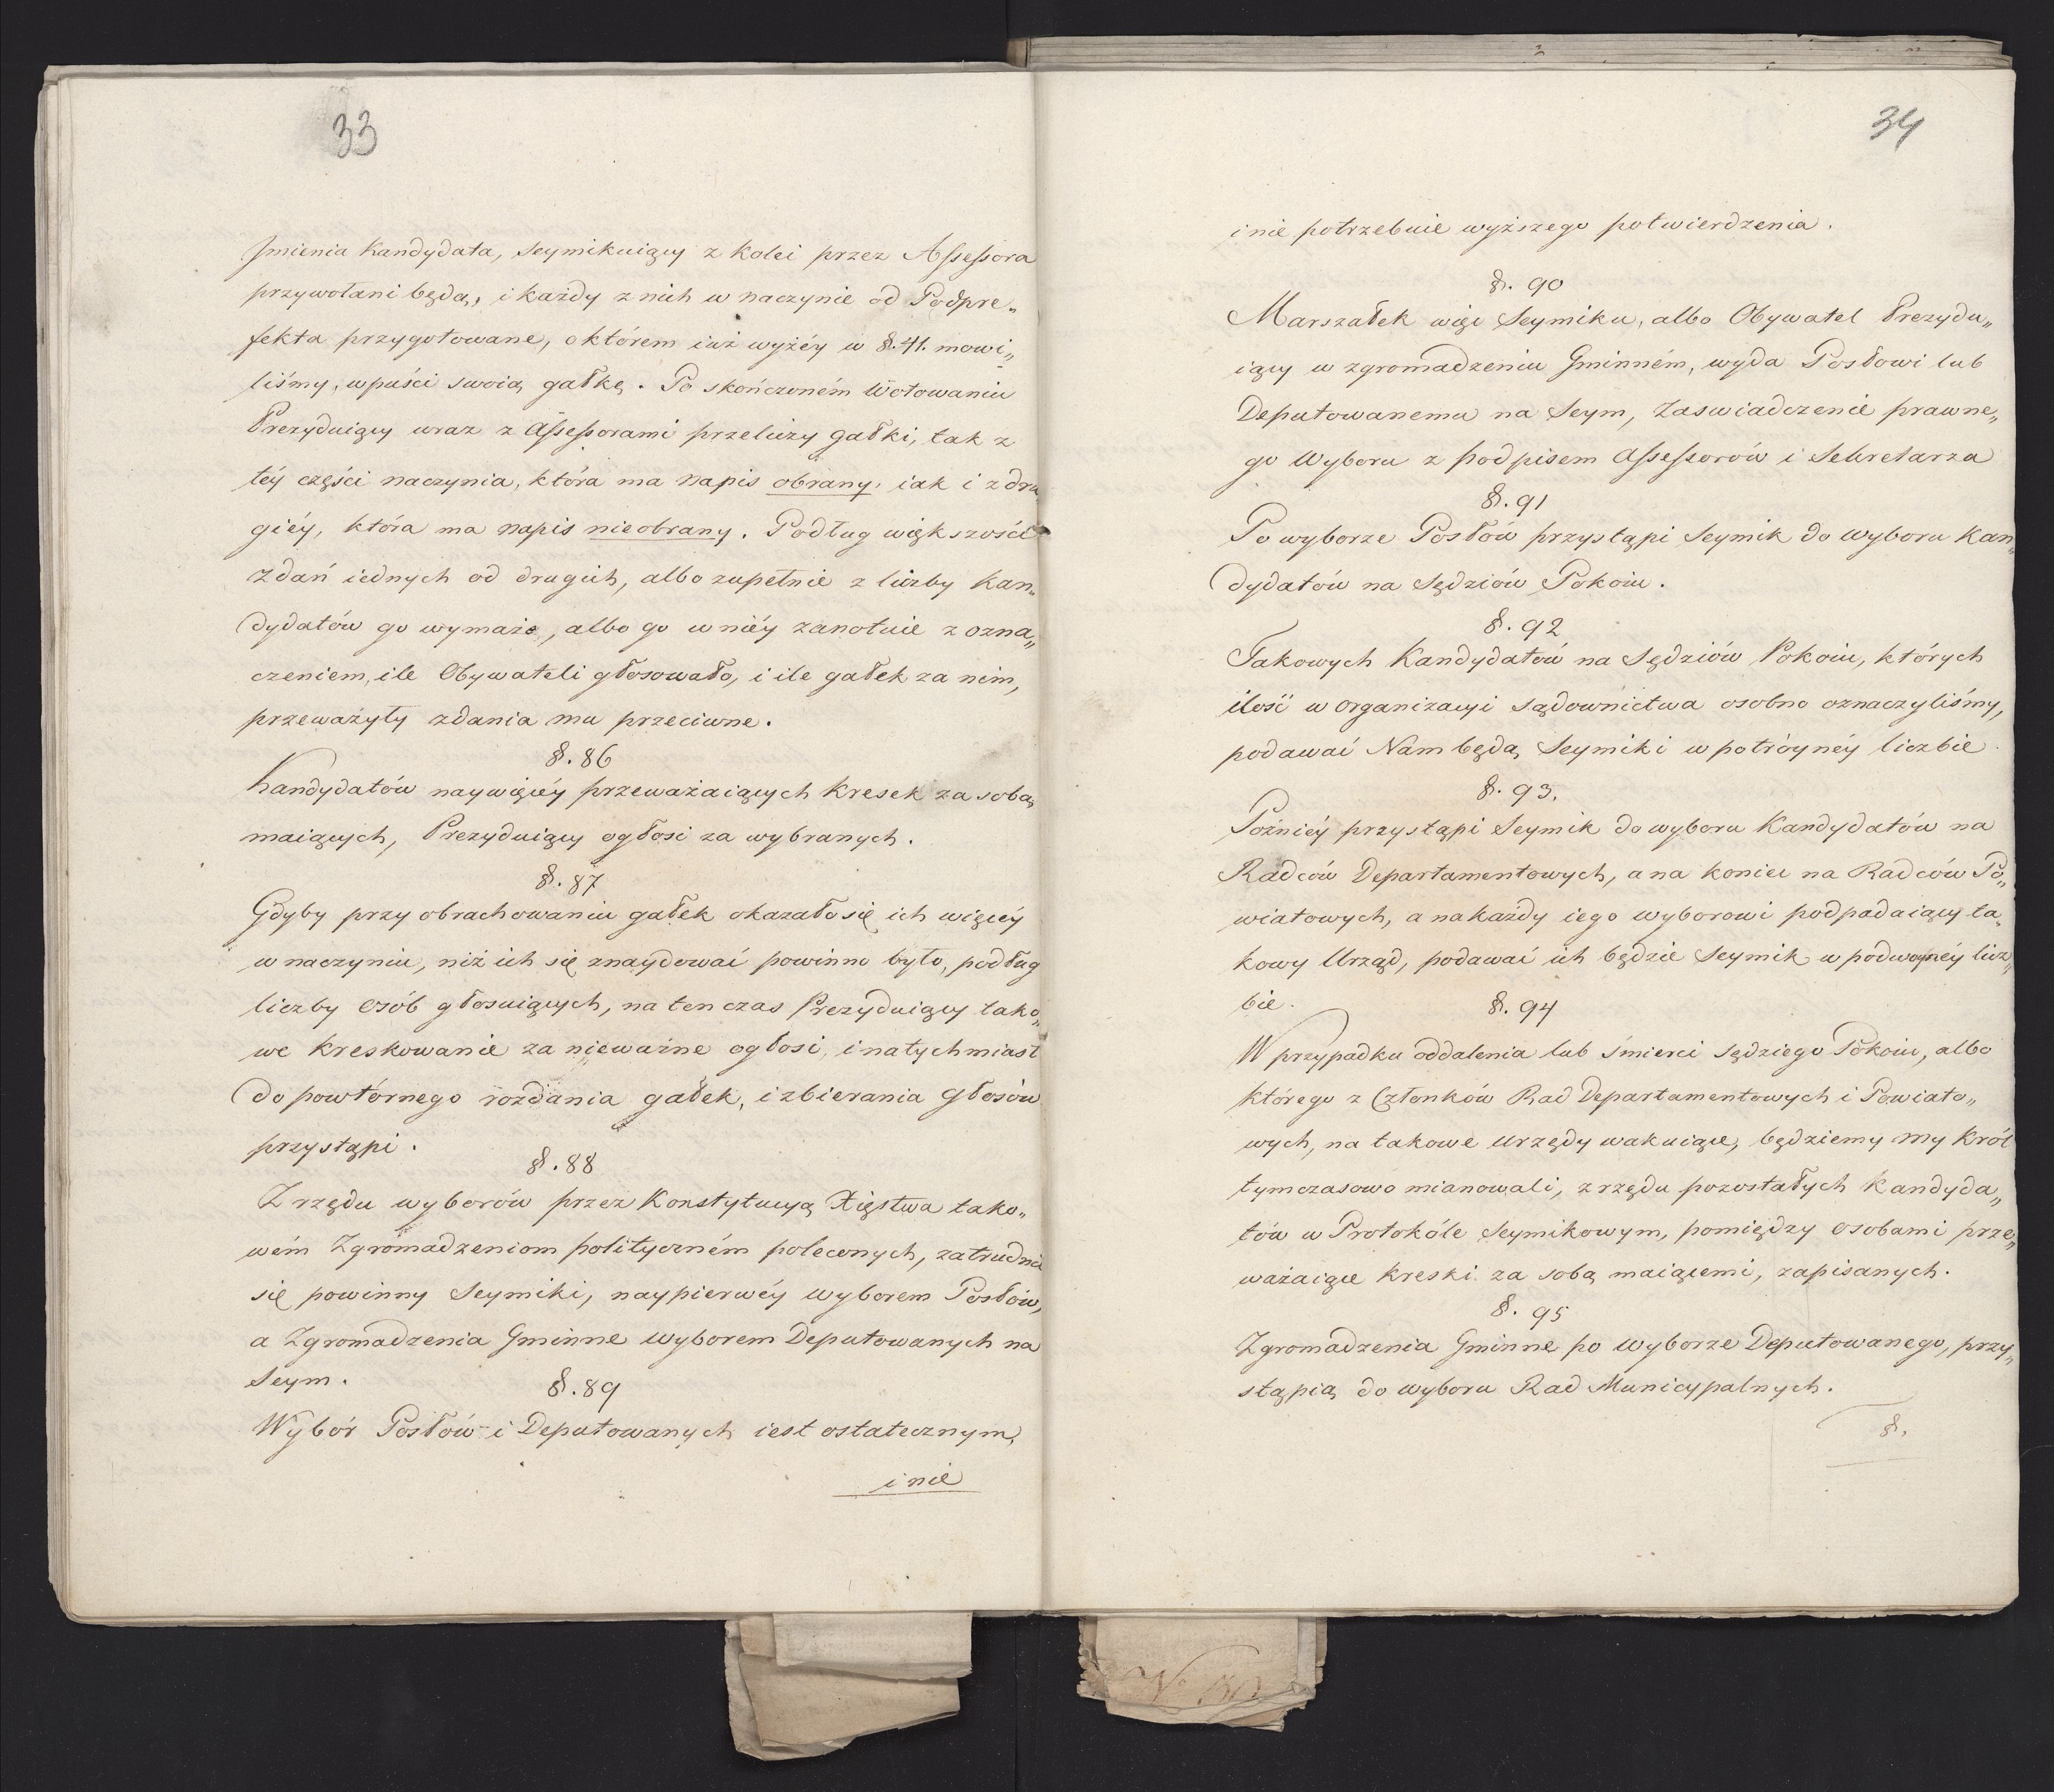 33
Jmienia Kandydata, Seymikuiący z kolei przez Assessora
przywołani będą, i każdy z nich w naczynie od Podpre„
fekta przygotowane, o którém iuż wyżéy w §.41. mowi„
liśmy, wpuści swoią gałkę. Po skończoném Wotowaniu
Prezyduiący wraz z Assessorami przeliczy gałki, tak z
téy części naczynia, która ma napis obrany, iak i z dru„
giéy, która ma napis nieobrany. Podług większości
zdań iednych od drugich, albo zupełnie z liczby Kan„
dydatów go wymaże, albo go w niéy zanotuie z ozna„
czeniem, ile Obywateli głosowało, i ile gałek za nim,
przeważyły zdania mu przeciwne.
§. 86
Kandydatów naywięcéy przeważaiących kresek za sobą
maiących, Prezyduiący ogłosi za wybranych.
§. 87
Gdyby przy obrachowaniu gałek okazało się ich więcéy
w naczyniu, niż ich się znaydować powinno było, podług
liczby osób głosuiących, na ten czas Prezyduiący tako„
we kreskowanie za nieważne ogłosi, i natychmiast
do powtórnego rozdania gałek, i zbierania głosów
przystąpi.
§. 88
Z rzędu wyborów przez Konstytucyą Xięstwa tako„
wém Zgromadzeniom polityczném poleconych, zatrudnić
się powinny Seymiki, naypierwéy wyborem Posłów,
a Zgromadzenia Gminne wyborem Deputowanych na
Seym.
§. 89
Wybór Posłów i Deputowanych iest ostatecznym,
i nie
34
i nie potrzebuie wyższego potwierdzenia.
§. 90
Marszałek więc Seymiku, albo Obywatel Prezydu„
iący w zgromadzeniu Gminném, wyda Posłowi lub
Deputowanemu na Seym, Zaswiadczenie prawne„
go Wyboru z podpisem Assessorów i Sekretarza
§. 91
Po wyborze Posłów przystąpi Seymik do wyboru Kan„
dydatów na Sędziów Pokoiu.
§. 92
Takowych Kandydatów na Sędziów Pokoiu, których
ilość w organizacyi sądownictwa osobno oznaczyliśmy,
podawać Nam będą Seymiki w potróynéy liczbie
§. 93.
Poźniéy przystąpi Seymik do wyboru Kandydatów na
Radców Departamentowych, a na koniec na Radców Po„
wiatowych, a na każdy iego wyborowi podpadaiący ta„
kowy Urząd, podawać ich będzie Seymik w podwoynéy licz„
bie.
§. 94
W przypadku oddalenia lub śmierci Sędziego Pokoiu, albo
którego z Członków Rad Departamentowych i Powiato„
wych, na takowe urzędy wakuiące, będziemy my Król
tymczasowo mianowali, z rzędu pozostałych Kandyda„
tów w Protokóle Seymikowym, pomiędzy osobami prze„
ważaiące kreski za sobą maiącemi, zapisanych.
§. 95
Zgromadzenia Gminne po wyborze Deputowanego, przy„
stąpią do wyboru Rad Municypalnych.
§.